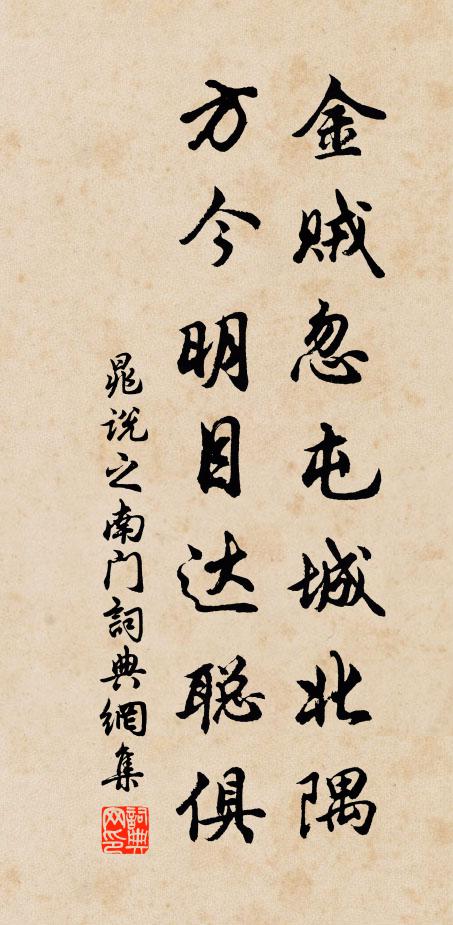 金贼忽屯城北隅
方今明目达聪俱
晁说之南门詞典網集
詞典网印